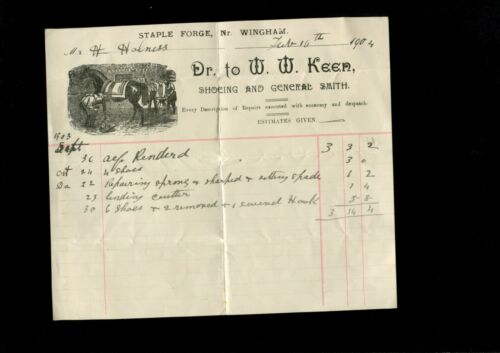 STAPLE FORGE, Nr. WINGHAM.
Mr H Holness Feb 16th 1904
Dr. to W. W. Keen,
SHOEING AND GENERAL SMITH.
Every Description of Repairs executed with economy and despatch.
ESTIMATES GIVEN.
1903
Sept 30 a/c Renderd 3 3 2
Oct 24 4 Shoes 3 0
Do 22 Repairing & sharped & spade 1 2
23 cutter 1 4
30 6 Shoes & 2 removed & 1 Hook 5 8
3 14 4